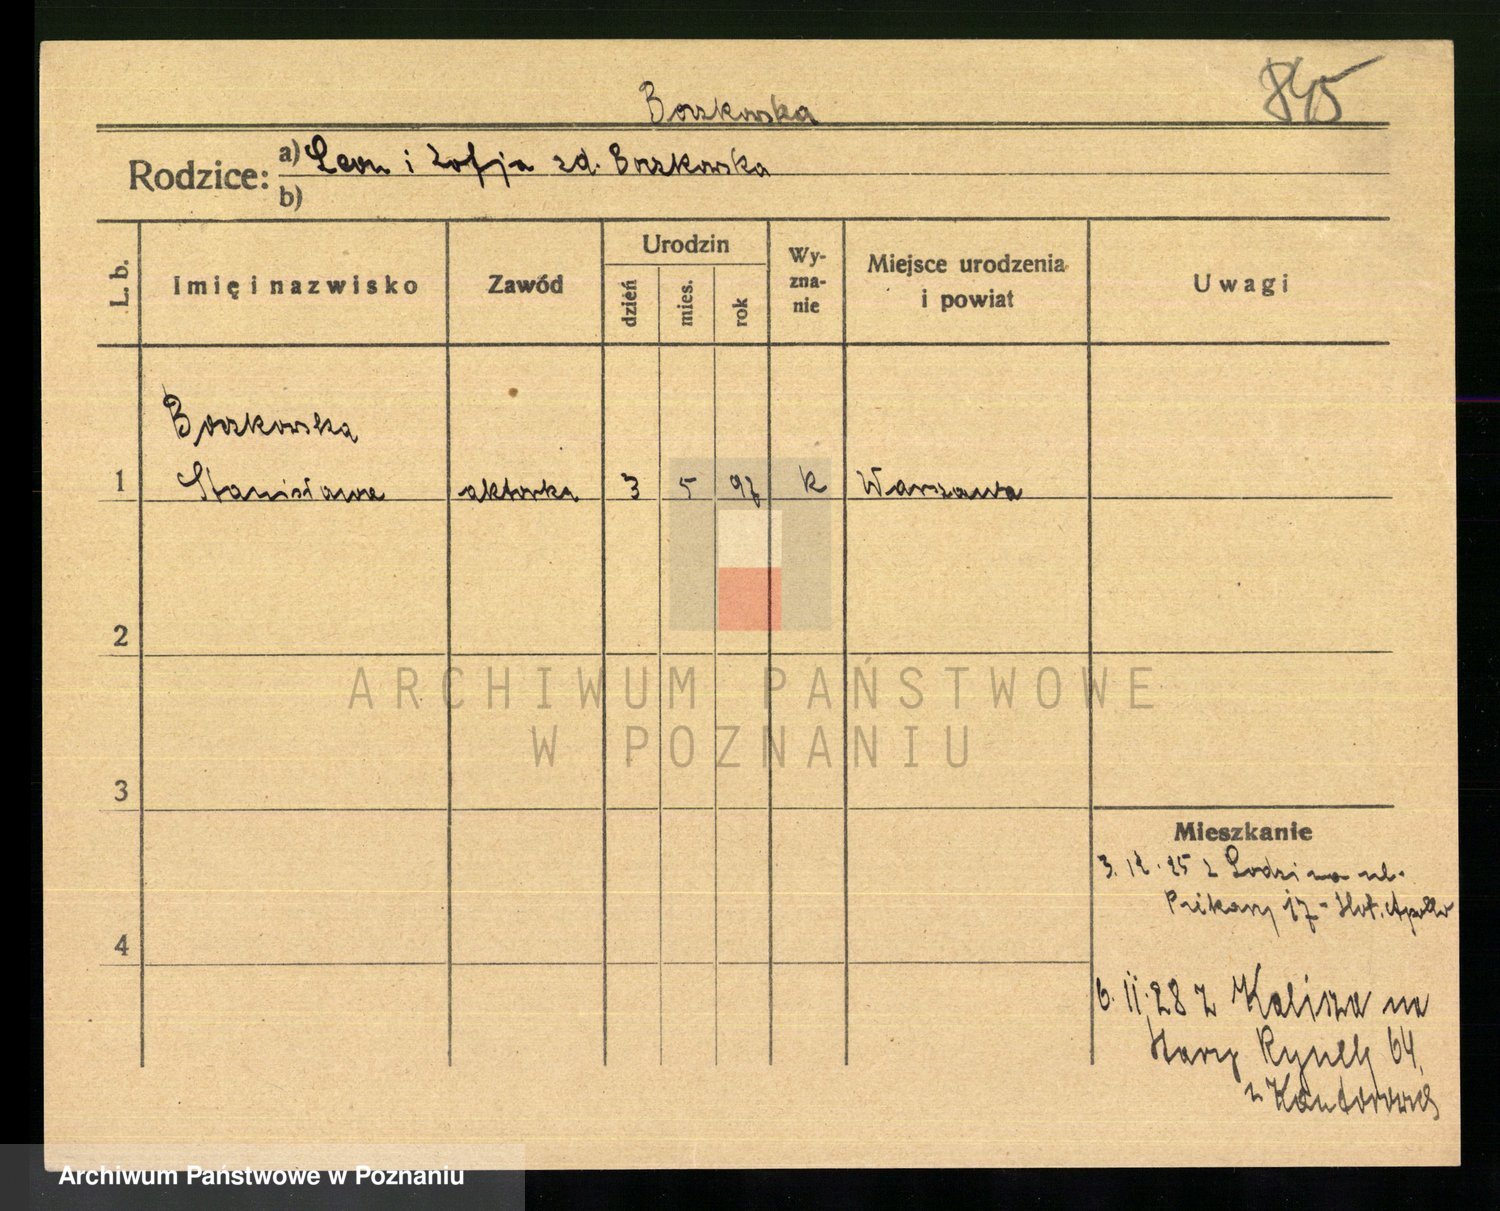 845
Borzkowska
Rodzice: a) Leon i Zofja zd. Borzkowska
b)
L. b.
Imię i nazwisko
Zawód
Urodzin
dzień
mies.
rok
Wy-
zna-
nie
Miejsce urodzenia
i powiat
Uwagi
Borzkowska
1 Stanisława aktorka 3 5 97 k Warszawa
2
3
4
Mieszkanie
3. 12. 25 z Łodzi na ul.
Piekary 17 - Hot. Apollo
6. II. 28 z Kalisza na
Stary Rynek 64
ARCHIWUM PAŃSTWOWE
W POZNANIU
Archiwum Państwowe w Poznaniu